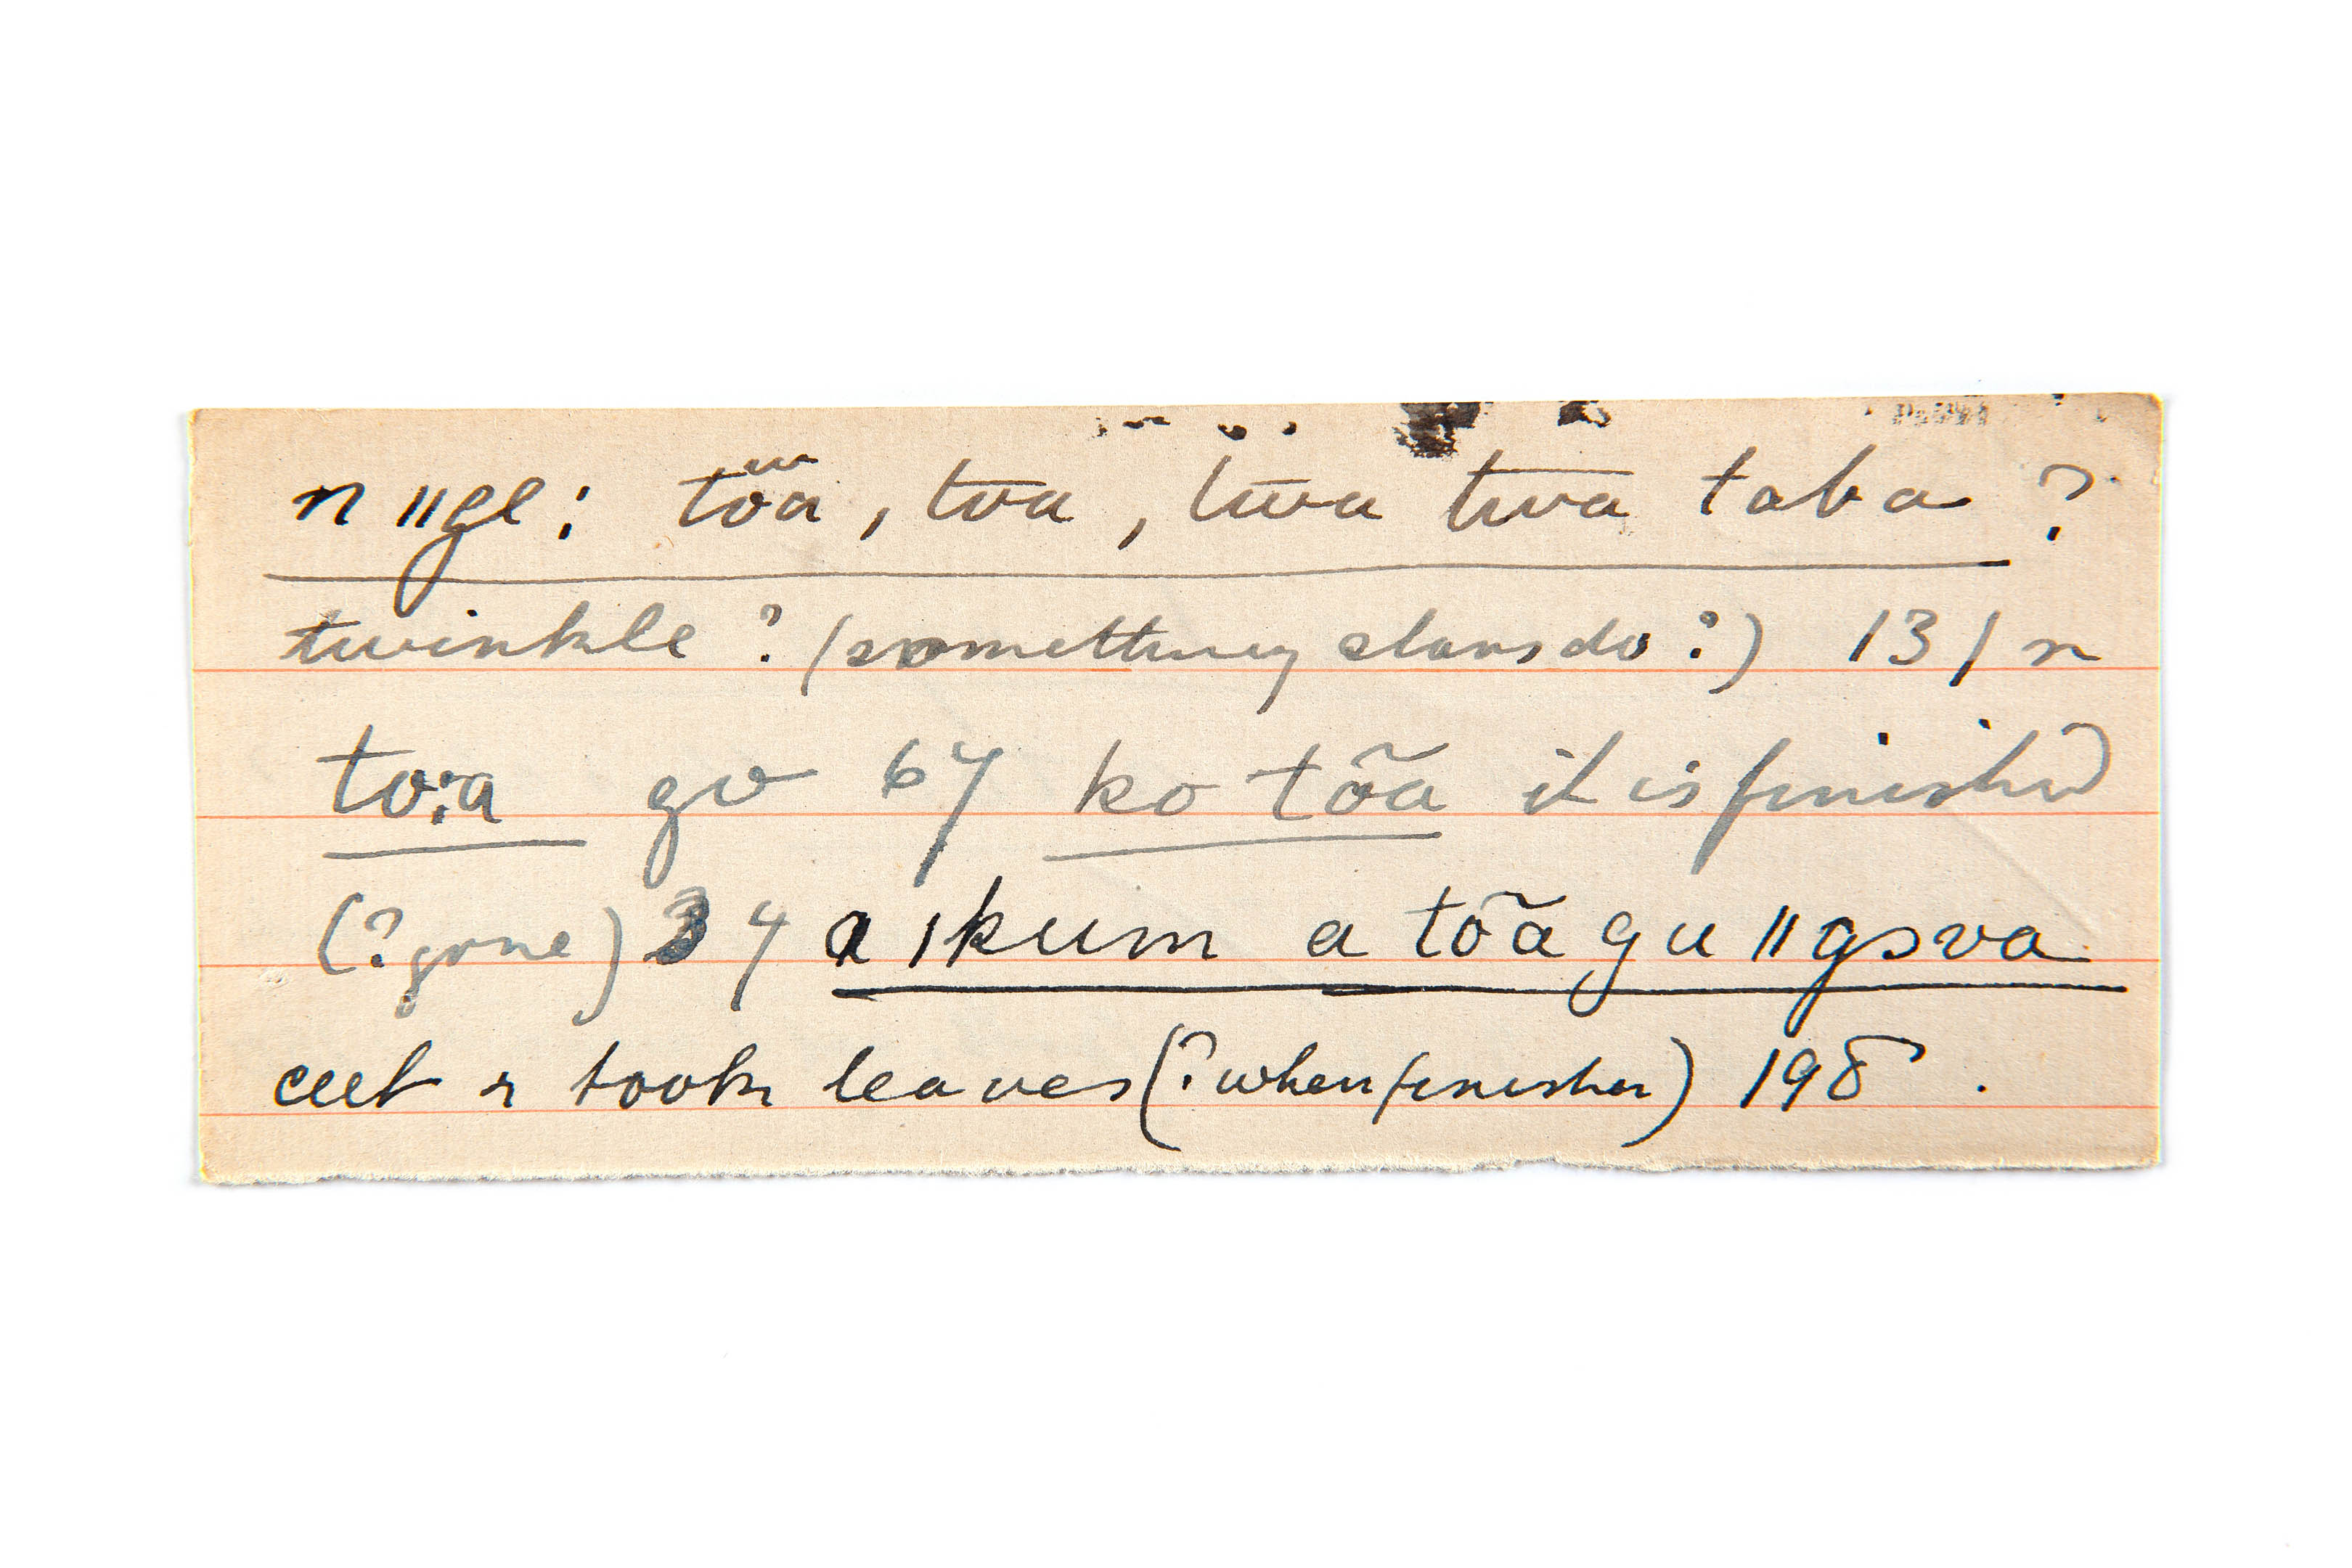 n ǁge: tõa, toa, twa twa taba ?
twinkle ? (something stars do ?) 131 n
to:a go 67 ko tõa it is finished
(? gone) 34 a ǀkum a tõa gu ǁgɔva
cut & took leaves (? when finished) 198 .